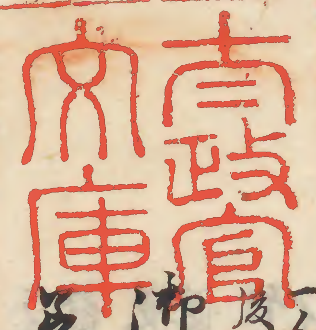 太政官
文庫
御